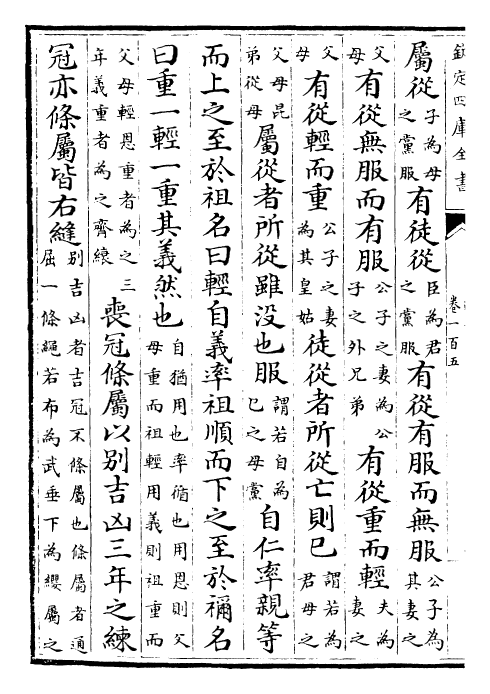 欽定四庫全書
卷一百五
屬從子為母之黨服有徒從臣為君之黨服有從有服而無服公子為其妻之
父母有從無服而有服公子之妻為公子之外兄弟有從重而輕夫為妻之
父母有從輕而重公子之妻為其皇姑徒從者所從亡則已謂若為君母之
父母昆弟從母屬從者所從雖没也服謂若自為已之母黨自仁率親等
而上之至於祖名曰輕自義率祖順而下之至於禰名
曰重一輕一重其義然也自猶用也率循也用恩則父母重而祖輕用義則祖重而
父母輕恩重者為之三年義重者為之齊縗喪冠條屬以別吉凶三年之練
冠亦條屬皆右縫別吉凶者吉冠不條屬也條屬者通屈一條繩若布為武垂下為纓屬之